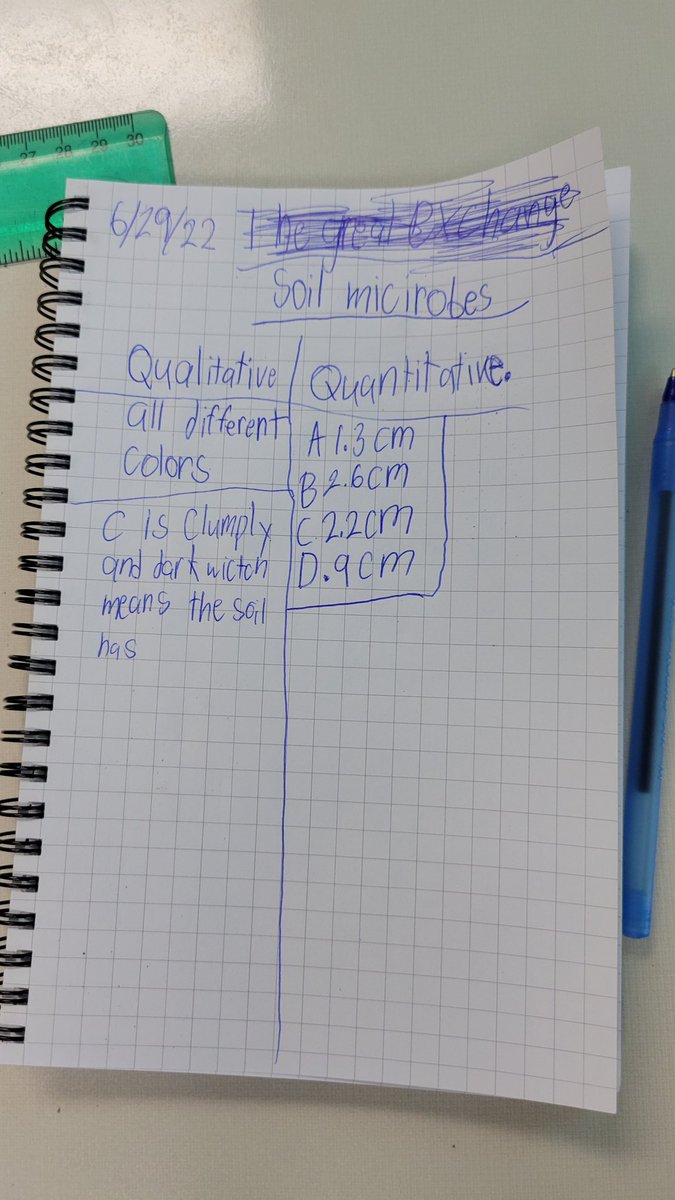 27 28 29 30
6/29/22 The great Exchange
Soil micirobes
Qualitative
Quantitative.
all different
colors
C is Clumply
and dark wictch
means the soil
has
A 1.3 cm
B 2.6 cm
C 2.2 cm
D .9 cm